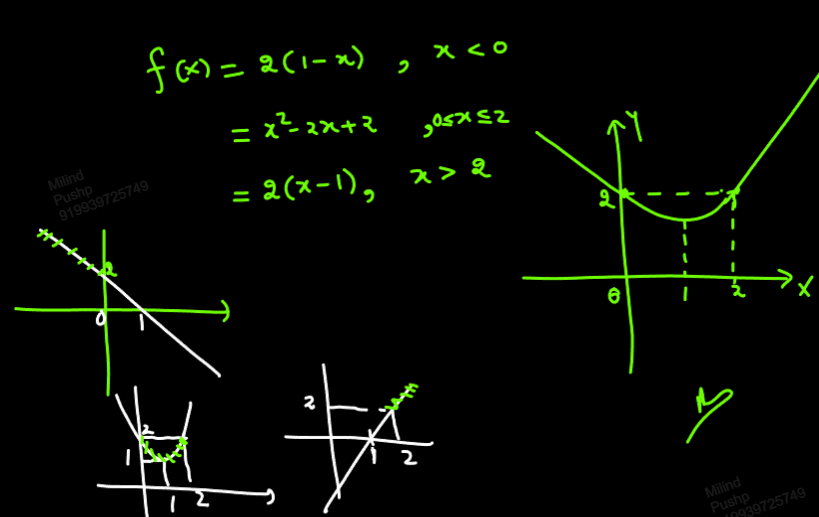 f(x) = 2(1-x) , x < 0
= x²-2x+2 , 0≤x≤2
= 2(x-1), x > 2
Milind
Pushp
919939725749
Y
2
0
1
2
X
2
0
1
2
1
1
2
2
1
2
Milind
Pushp
919939725749